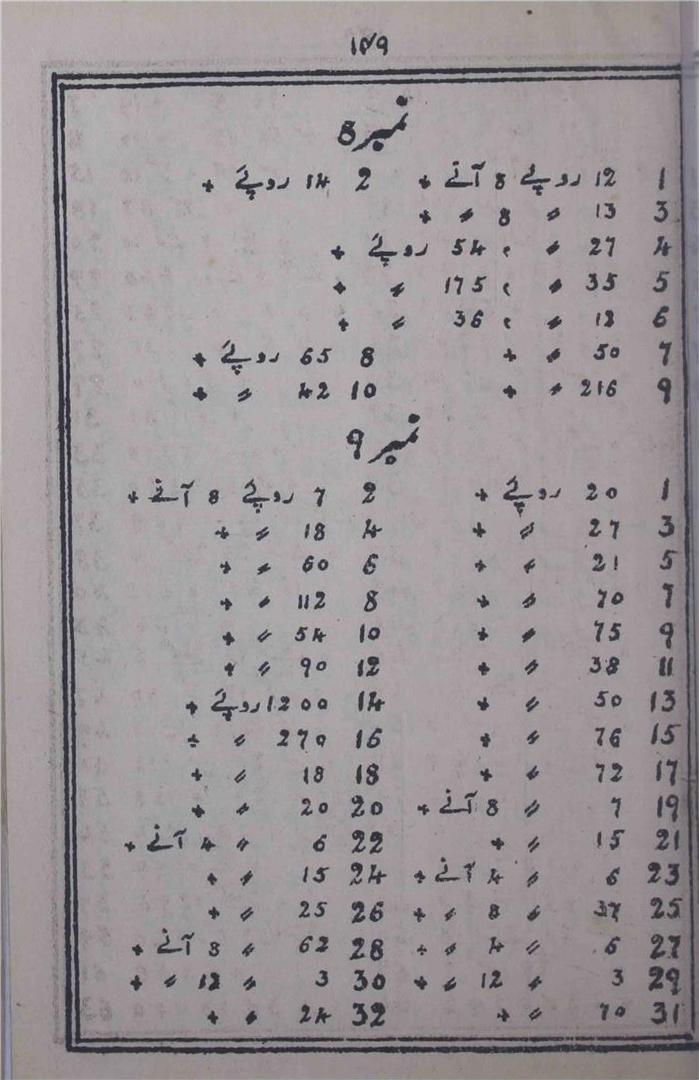 ۱۴۹
نمبر 8
1 12 روپے 8 آنے + 2 14 روپے +
3 13 〃 8 〃 +
4 27 〃 ، 54 روپے +
5 35 〃 ، 175 〃 +
6 18 〃 ، 36 〃 +
7 50 〃 + 8 65 روپے +
9 216 〃 + 10 42 〃 +
نمبر 9
1 20 روپے + 2 7 روپے 8 آنے +
3 27 〃 + 4 18 〃 +
5 21 〃 + 6 60 〃 +
7 70 〃 + 8 112 〃 +
9 75 〃 + 10 54 〃 +
11 38 〃 + 12 90 〃 +
13 50 〃 + 14 1200 روپے +
15 76 〃 + 16 270 〃 +
17 72 〃 + 18 18 〃 +
19 7 〃 8 آنے + 20 20 〃 +
21 15 〃 + 22 6 〃 4 آنے +
23 6 〃 4 آنے + 24 15 〃 +
25 37 〃 8 〃 + 26 25 〃 +
27 6 〃 4 〃 + 28 62 〃 8 آنے +
29 3 〃 12 〃 + 30 3 〃 12 〃 +
31 70 〃 + 32 24 〃 +